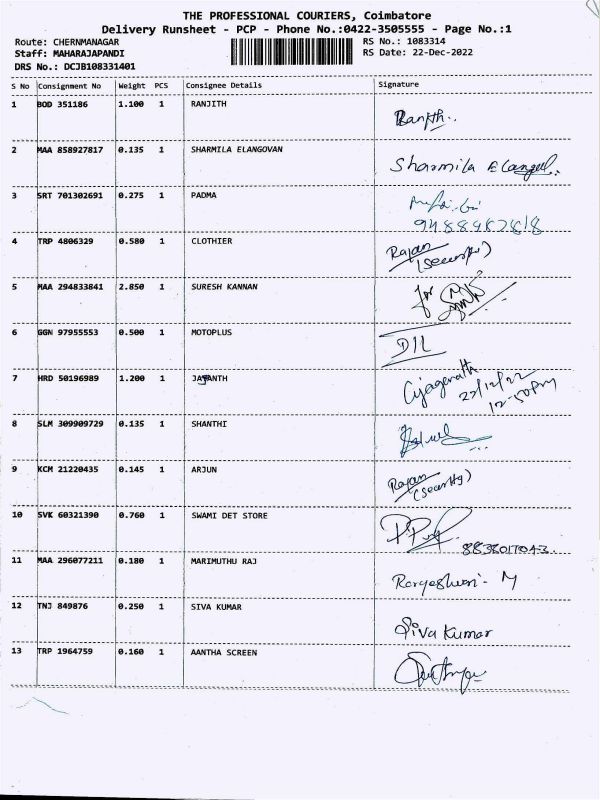 THE PROFESSIONAL COURIERS, Coimbatore
Delivery Runsheet - PCP - Phone No.:0422-3505555 - Page No.:1
Route: CHERNMANAGAR RS No.: 1083314
Staff: MAHARAJAPANDI RS Date: 22-Dec-2022
DRS No.: DCJB108331401
S No Consignment No Weight PCS Consignee Details Signature
1 BOD 351186 1.100 1 RANJITH
Ranjith..
2 MAA 858927817 0.135 1 SHARMILA ELANGOVAN
Sharmila
3 SRT 701302691 0.275 1 PADMA
4 TRP 4806329 0.580 1 CLOTHIER
Rajan
(Security)
5 MAA 294833841 2.850 1 SURESH KANNAN
for
6 GGN 97955553 0.500 1 MOTOPLUS
7 HRD 50196989 1.200 1 JAYANTH
22/12/22
12-50pm
8 SLM 309909729 0.135 1 SHANTHI
9 KCM 21220435 0.145 1 ARJUN
Rajan
(Security)
10 SVK 60321390 0.760 1 SWAMI DET STORE
11 MAA 296077211 0.180 1 MARIMUTHU RAJ
12 TNJ 849876 0.250 1 SIVA KUMAR
Siva Kumar
13 TRP 1964759 0.160 1 AANTHA SCREEN